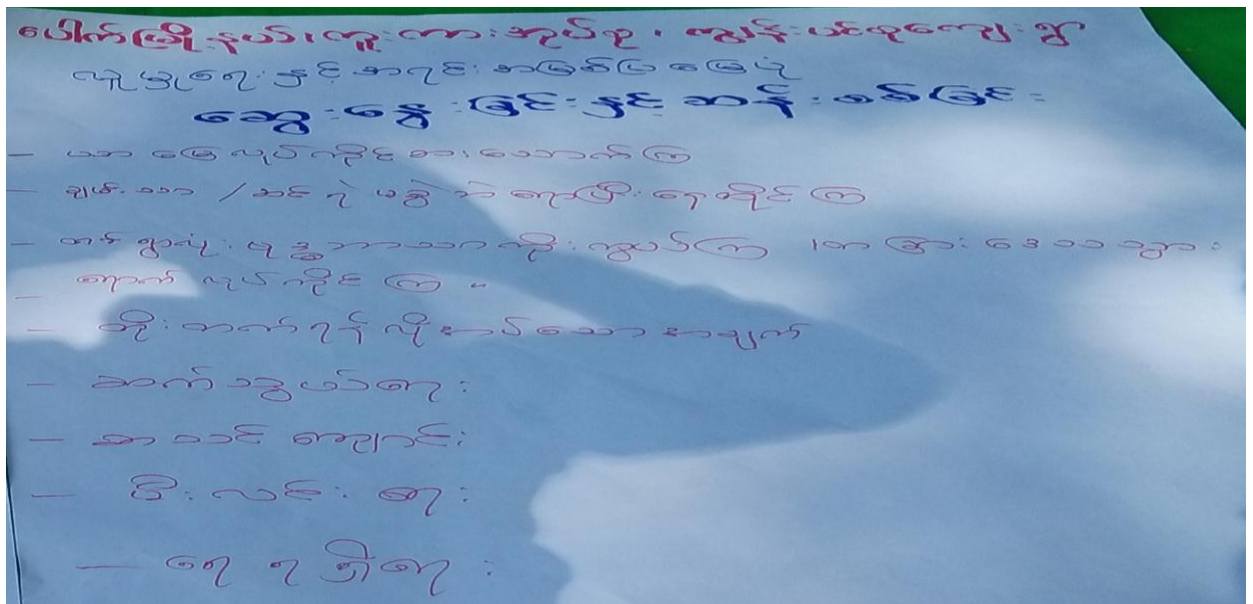 ပေါက်မြို့နယ်၊ ကူးကားအုပ်စု၊ ကျွန်းပင်စုကျေးရွာ
လူမှုရေးနှင့် အရင်းအမြစ်ပြ မြေပုံ
ဆွေးနွေးခြင်းနှင့် ဆန်းစစ်ခြင်း
- ယာမြေလုပ်ကိုင်စားသောက်ကြ
- ချမ်းသာ / ဆင်းရဲ မခွဲဘဲ ရောပြီးနေထိုင်ကြ
- တစ်ရွာလုံး ဗုဒ္ဓဘာသာကိုးကွယ်ကြ ၊ တခြားဒေသသွား
- ရောက်လုပ်ကိုင်ကြ ။
- တိုးတက်ရန် လိုအပ်သောအချက်
- ဆက်သွယ်ရေး
- စာသင်ကျောင်း
- မီးလင်းရေး
- ရေရရှိရေး